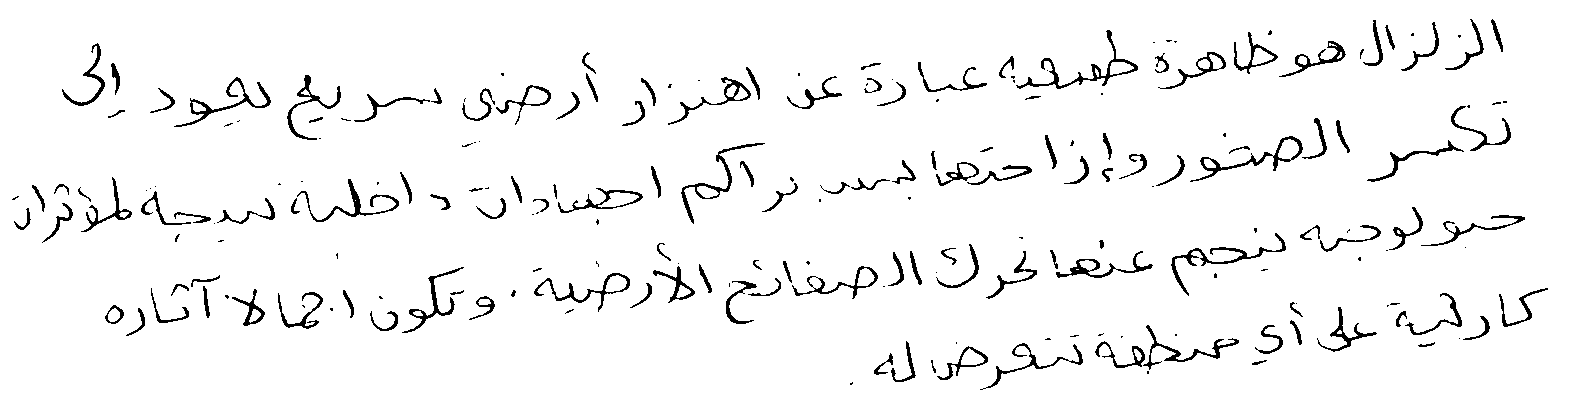 الزلزال هو ظاهرة طبيعية عبارة عن اهتزاز أرضي سريع يعود إلى
تكسر الصخور وإزاحتها بسبب تراكم اجهادات داخلية نتيجة لمؤثرات
جيولوجية ينجم عنها تحرك الصفائح الأرضية. وتكون اجمالا آثاره
كارثية على أي منطقة تتعرض له.